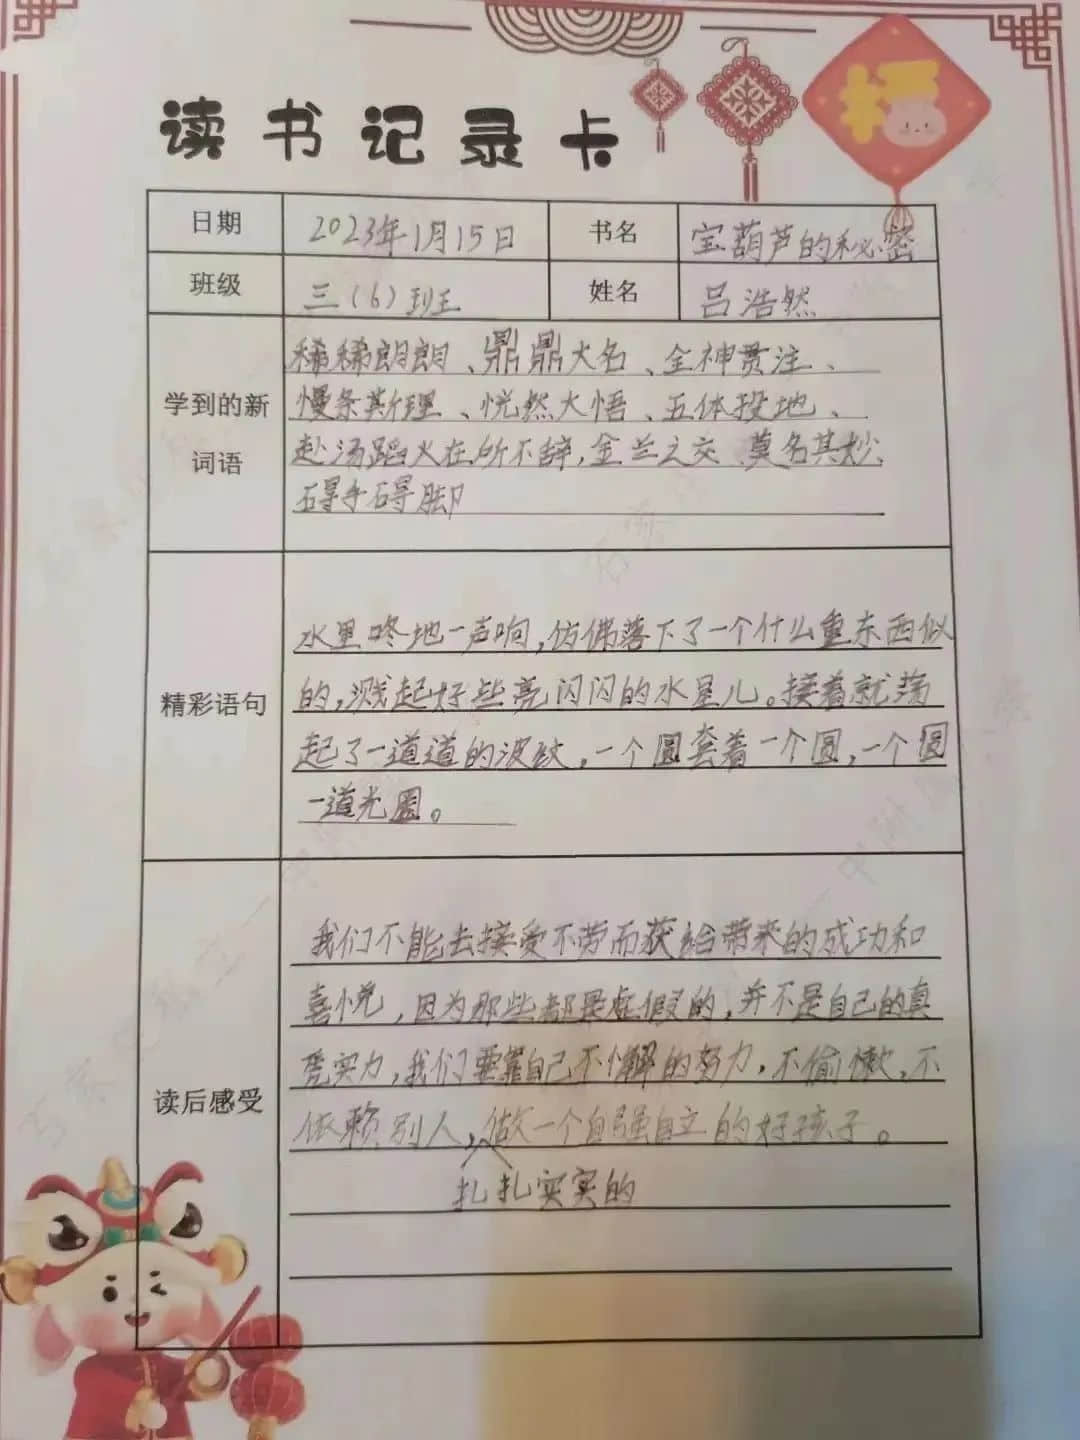 福
读书记录卡
日期 2023年1月15日 书名 宝葫芦的秘密
班级 三(6)班 姓名 吕浩然
学到的新词语
稀稀朗朗、鼎鼎大名、全神贯注、
慢条斯理、恍然大悟、五体投地、
赴汤蹈火在所不辞,金兰之交 莫名其妙
碍手碍脚
精彩语句
水里咚地一声响,仿佛落下了一个什么重东西似
的,溅起好些亮闪闪的水星儿。接着就荡
起了一道道的波纹,一个圆套着一个圆,一个圆
一道光圈。
读后感受
我们不能去接受不劳而获给带来的成功和
喜悦,因为那些都是虚假的,并不是自己的真
实力,我们要靠自己不懈的努力,不偷懒,不
依赖别人,做一个自强自立的好孩子。
扎扎实实的